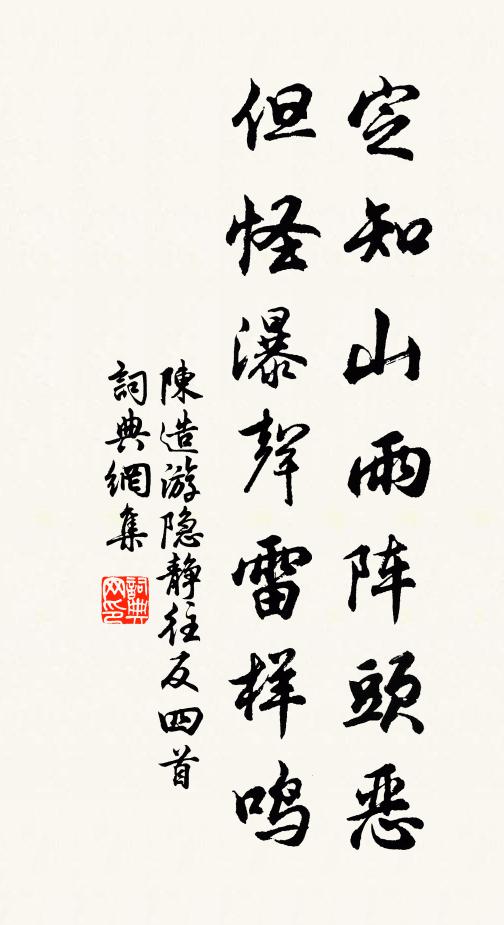 定知山雨阵頭恶
但怪瀑聲雷样鸣
陳造游隐静往反四首
詞典網集
詞典
网印